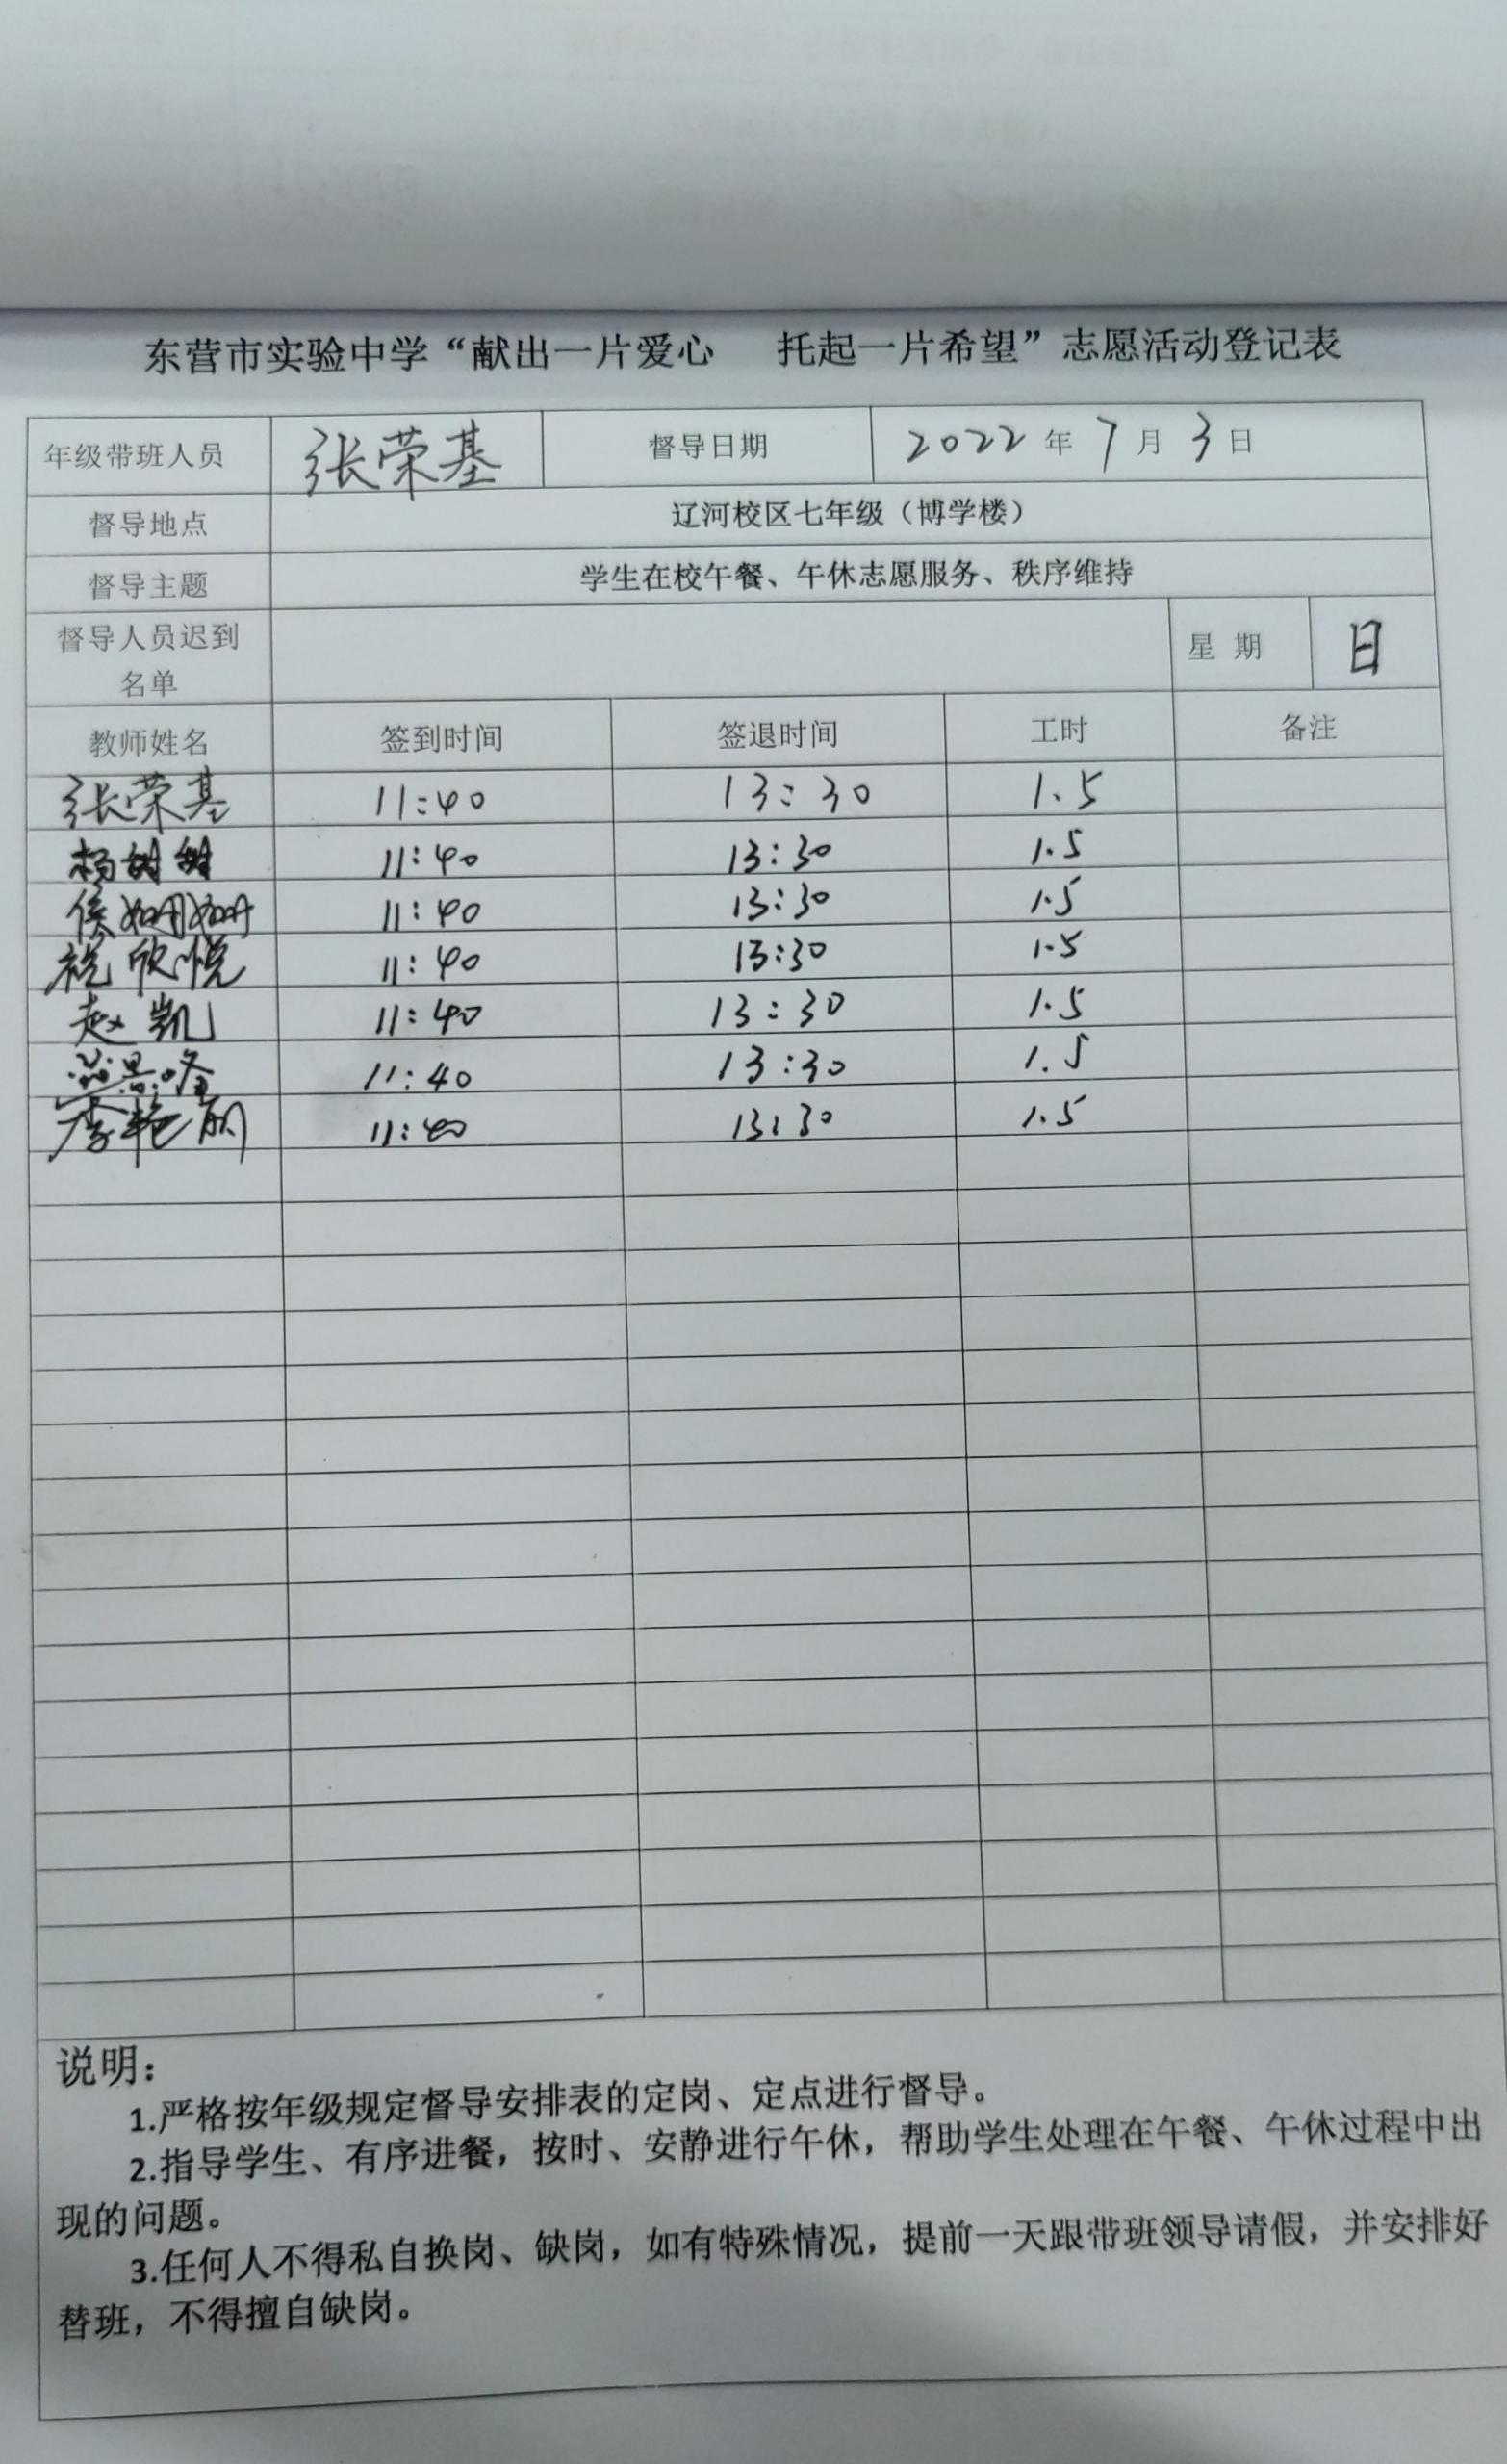 东营市实验中学“献出一片爱心 托起一片希望”志愿活动登记表
年级带班人员 张荣基 督导日期 2022年7月3日
督导地点 辽河校区七年级（博学楼）
督导主题 学生在校午餐、午休志愿服务、秩序维持
督导人员迟到
名单
星 期 日
教师姓名 签到时间 签退时间 工时 备注
张荣基 11:40 13:30 1.5
杨 11:40 13:30 1.5
侯姗姗 11:40 13:30 1.5
祝欣悦 11:40 13:30 1.5
赵凯 11:40 13:30 1.5
11:40 13:30 1.5
李艳丽 11:40 13:30 1.5
说明：
1.严格按年级规定督导安排表的定岗、定点进行督导。
2.指导学生、有序进餐，按时、安静进行午休，帮助学生处理在午餐、午休过程中出
现的问题。
3.任何人不得私自换岗、缺岗，如有特殊情况，提前一天跟带班领导请假，并安排好
替班，不得擅自缺岗。